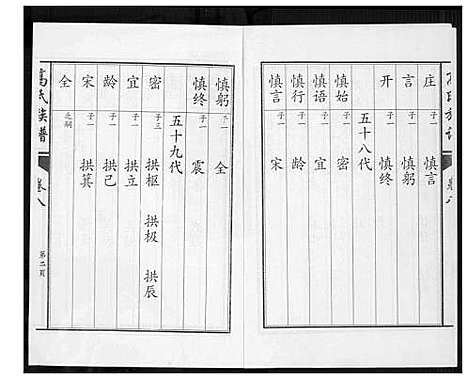 庄 子一 慎言
言 子一 慎躬
开 子一 慎终
五十八代
慎始 子一 密
慎语 子一 宜
慎行 子一 龄
慎言 子一 宋
慎躬 子一 全
慎终 子一 震
五十九代
密 子三 拱枢 拱极 拱辰
宜 子一 拱立
龄 子一 拱己
宋 子一 拱箕
全
高氏族谱 卷八 第二页